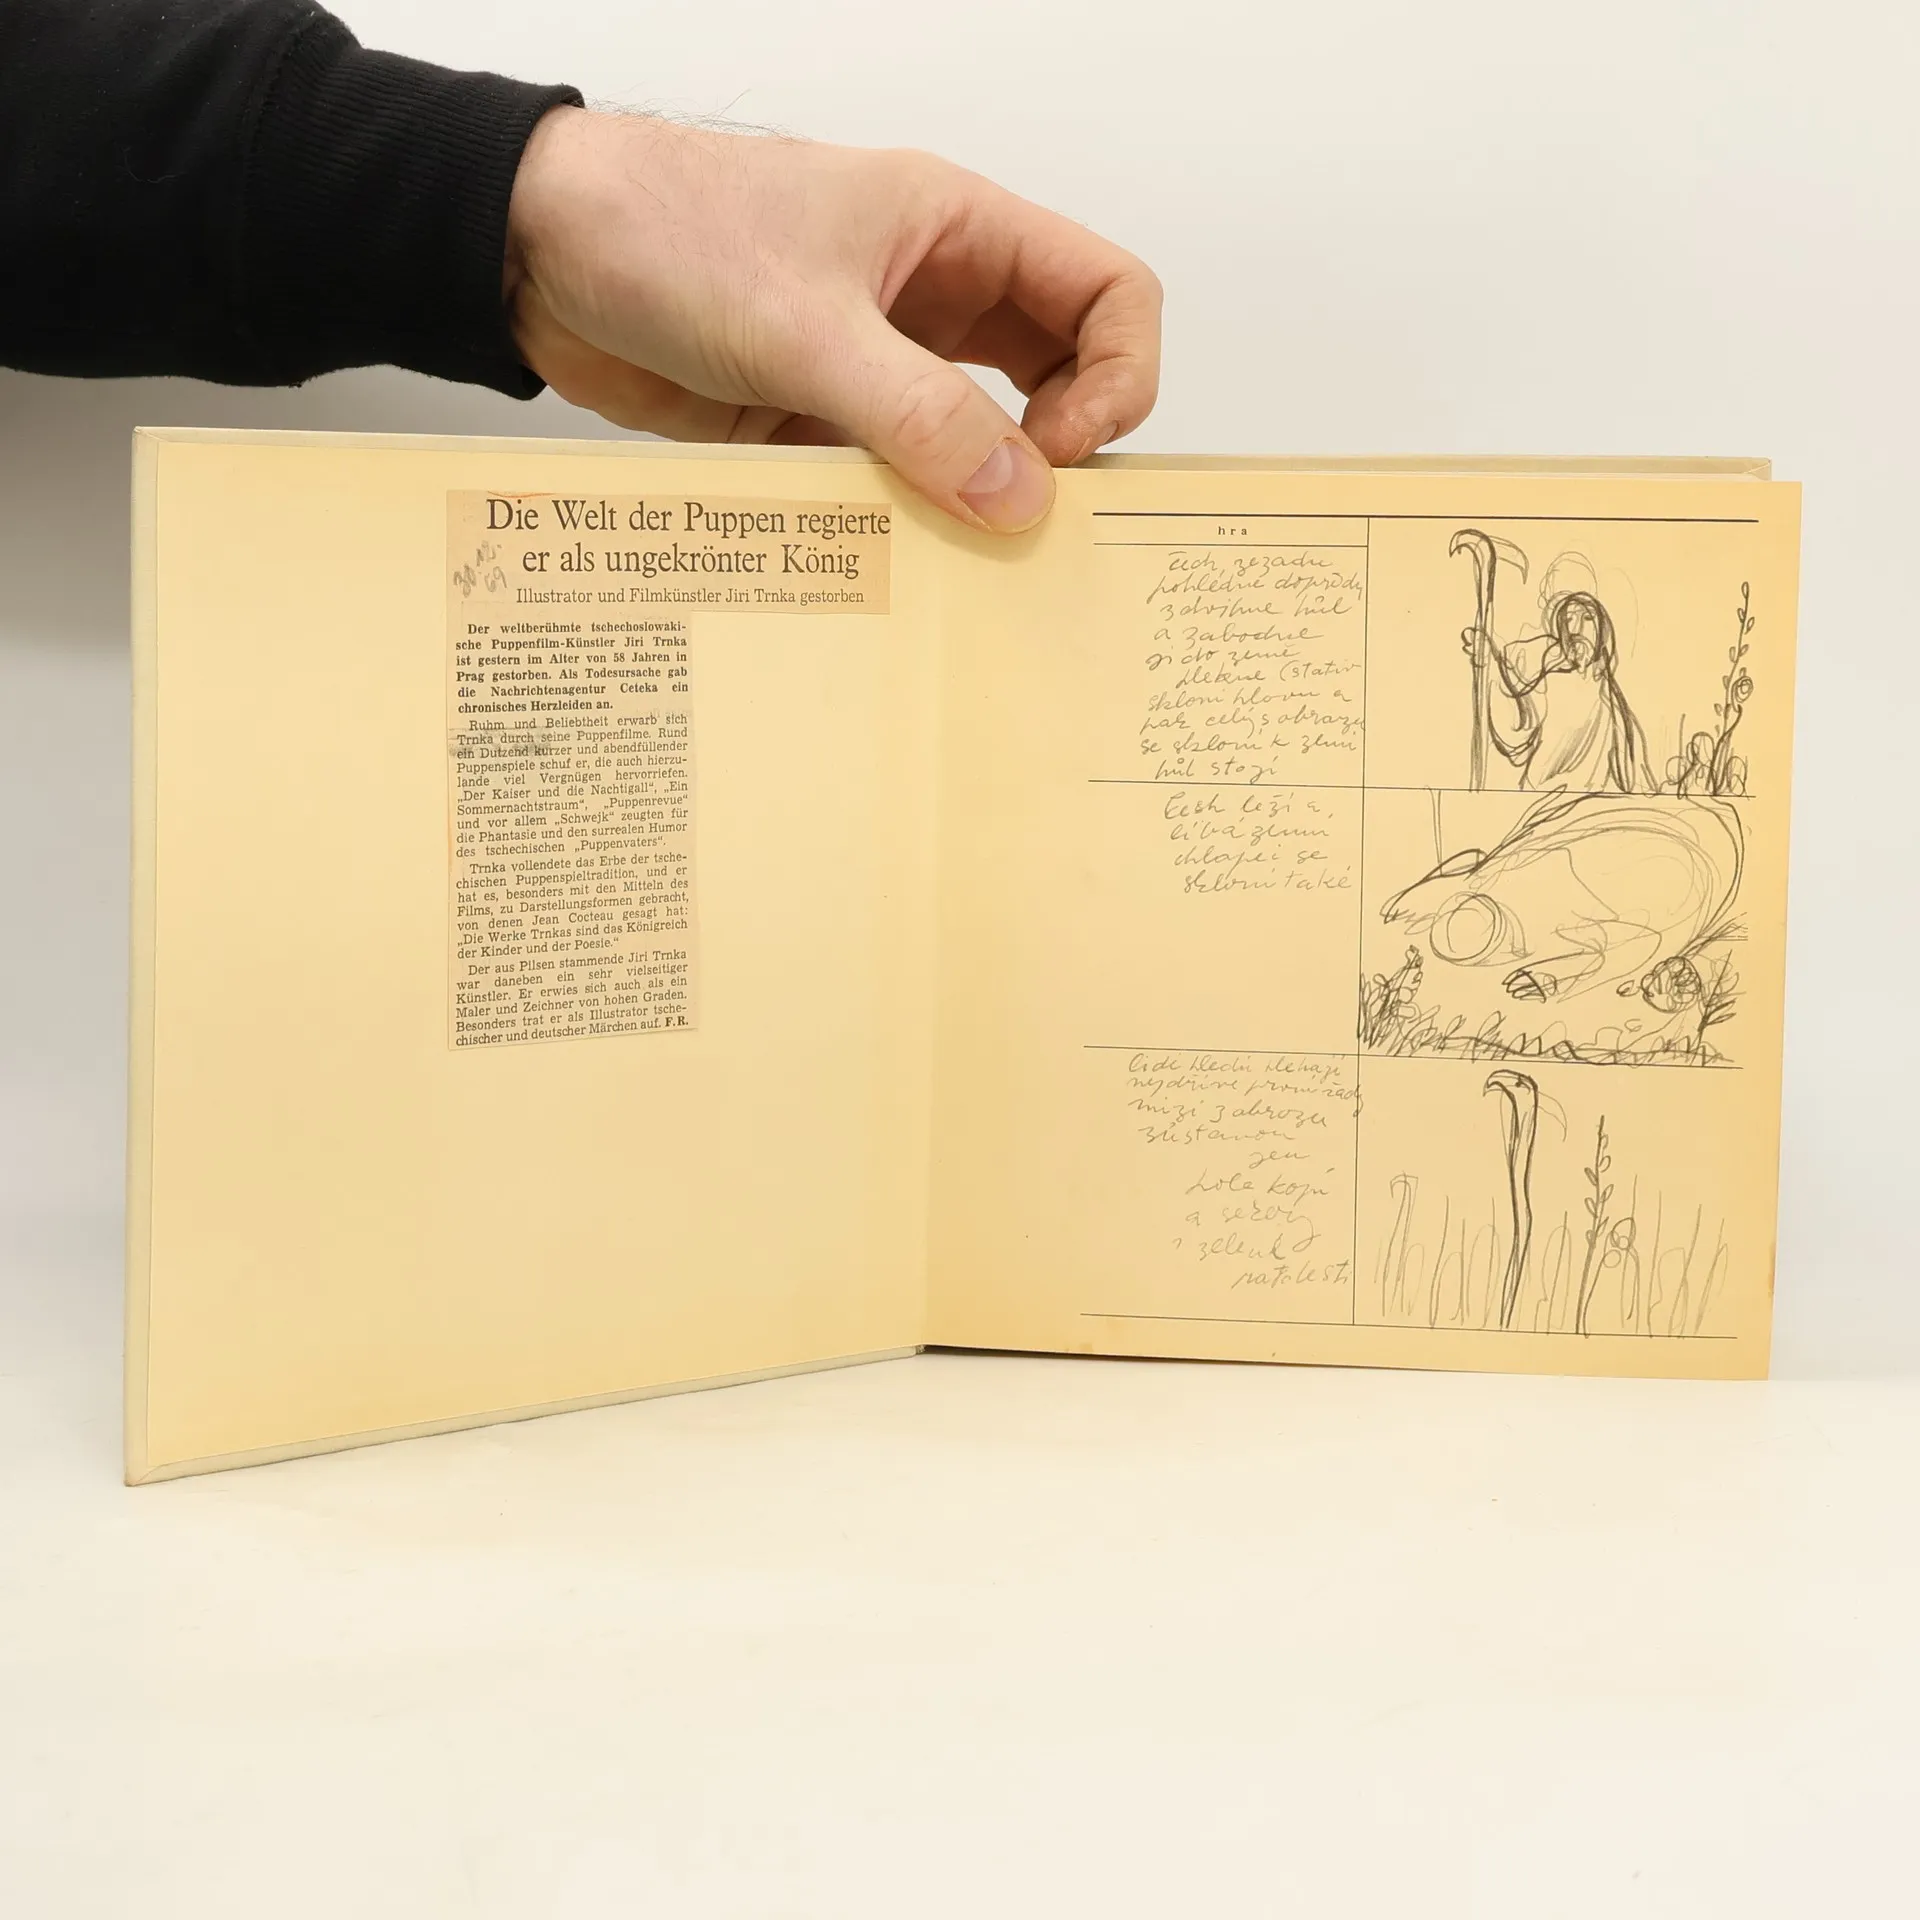 Die Welt der Puppen regierte
er als ungekrönter König
Illustrator und Filmkünstler Jiri Trnka gestorben
Der weltberühmte tschechoslowaki-
sche Puppenfilm-Künstler Jiri Trnka
ist gestern im Alter von 58 Jahren in
Prag gestorben. Als Todesursache gab
die Nachrichtenagentur Ceteka ein
chronisches Herzleiden an.
Ruhm und Beliebtheit erwarb sich
Trnka durch seine Puppenfilme. Rund
ein Dutzend kurzer und abendfüllender
Puppenspiele schuf er, die auch hierzu-
lande viel Vergnügen hervorriefen.
„Der Kaiser und die Nachtigall“, „Ein
Sommernachtstraum“, „Puppenrevue“
und vor allem „Schwejk“ zeugten für
die Phantasie und den surrealen Humor
des tschechischen „Puppenvaters“.
Trnka vollendete das Erbe der tsche-
chischen Puppenspieltradition, und er
hat es, besonders mit den Mitteln des
Films, zu Darstellungsformen gebracht,
von denen Jean Cocteau gesagt hat:
„Die Werke Trnkas sind das Königreich
der Kinder und der Poesie.“
Der aus Pilsen stammende Jiri Trnka
war daneben ein sehr vielseitiger
Künstler. Er erwies sich auch als ein
Maler und Zeichner von hohen Graden.
Besonders trat er als Illustrator tsche-
chischer und deutscher Märchen auf. F.R.
hra
čech, zezadu
pohlédne dopředu
zdvihne hůl
a zabodne
ji do země
klekne (stativ
skloní hlavu a
pak celý s obrazu
se skloní k zemi
hůl stojí
Čech leží a
líbá zemi
chlapci se
skloní také
lidé klekají
nejdříve první řady
mizí z obrazu
zůstanou
jen
hole kopí
a
zeleně